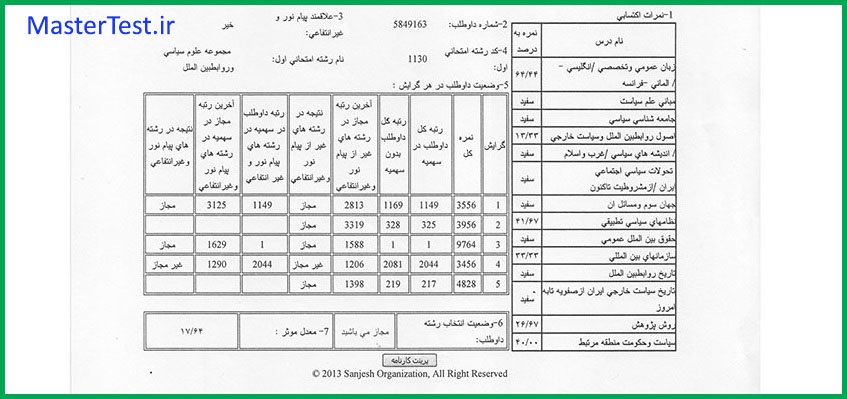 MasterTest.ir
1-نمرات اكتسابي
نام درس
نمره به درصد
زبان عمومي وتخصصي /انگليسي -
/ الماني -فرانسه
۶۴/۴۴
مباني علم سياست
سفيد
جامعه شناسي سياسي
سفيد
اصول روابطبين الملل وسياست خارجي
۱۳/۳۳
/ انديشه هاي سياسي /غرب واسلام
سفيد
تحولات سياسي اجتماعي
ايران /ازمشروطيت تاكنون
سفيد
جهان سوم ومسائل ان
سفيد
نظامهاي سياسي تطبيقي
۴۱/۶۷
حقوق بين الملل عمومي
سفيد
سازمانهاي بين المللي
۳۳/۳۳
تاريخ روابطبين الملل
سفيد
تاريخ سياست خارجي ايران ازصفويه تابه
امروز
سفيد
روش پژوهش
۲۶/۶۷
سياست وحكومت منطقه مرتبط
۴۰/۰۰
2-شماره داوطلب:
5849163
3-علاقمند پيام نور و
غيرانتفاعي:
خير
4-كد رشته امتحاني
اول:
1130
نام رشته امتحاني اول:
مجموعه علوم سياسي
وروابطبين الملل
5-وضعيت داوطلب در هر گرايش :
گرايش
نمره كل
رتبه كل داوطلب در سهميه
رتبه كل داوطلب بدون سهميه
آخرين رتبه مجاز در رشته هاي غير از پيام نور وغيرانتفاعي
نتيجه در رشته هاي غير از پيام نور وغيرانتفاعي
رتبه داوطلب در سهميه در رشته هاي پيام نور و غير انتفاعي
آخرين رتبه مجاز در سهميه در رشته هاي پيام نور وغيرانتفاعي
نتيجه در رشته هاي پيام نور وغيرانتفاعي
1 3556 1149 1169 2813 مجاز 1149 3125 مجاز
2 3956 325 328 3319 مجاز
3 9764 1 1 1588 مجاز 1 1629 مجاز
4 3456 2044 2081 1206 غير مجاز 2044 1290 غير مجاز
5 4828 217 219 1398 مجاز
6-وضعيت انتخاب رشته
داوطلب:
مجاز مي باشيد
7- معدل موثر :
۱۷/۶۴
پرينت كارنامه
© 2013 Sanjesh Organization, All Right Reserved